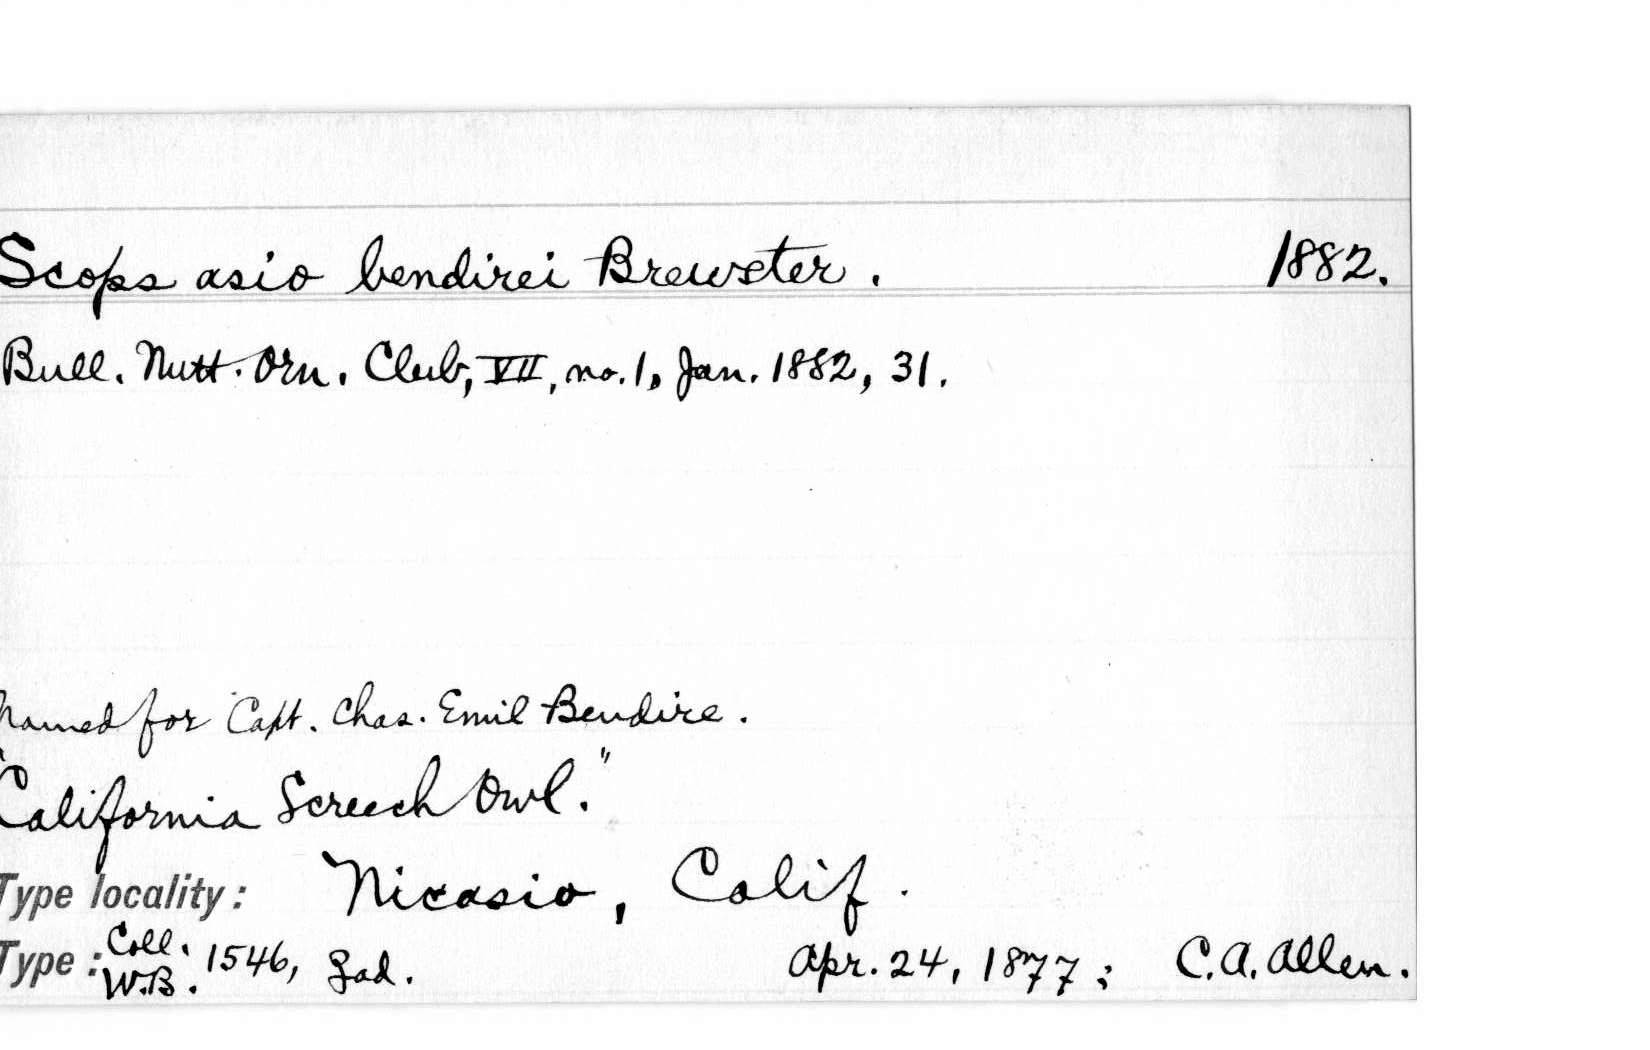 Scops asio bendirei Brewster. 1882.
Bull. Nutt. Orn. Club, VII, no. 1, Jan. 1882, 31.
Named for Capt. Chas. Emil Bendire.
"California Screech Owl."
Type locality: Nicasio, Calif.
Type: Coll. W.B. 1546, ad. Apr. 24, 1877; C.A. Allen.